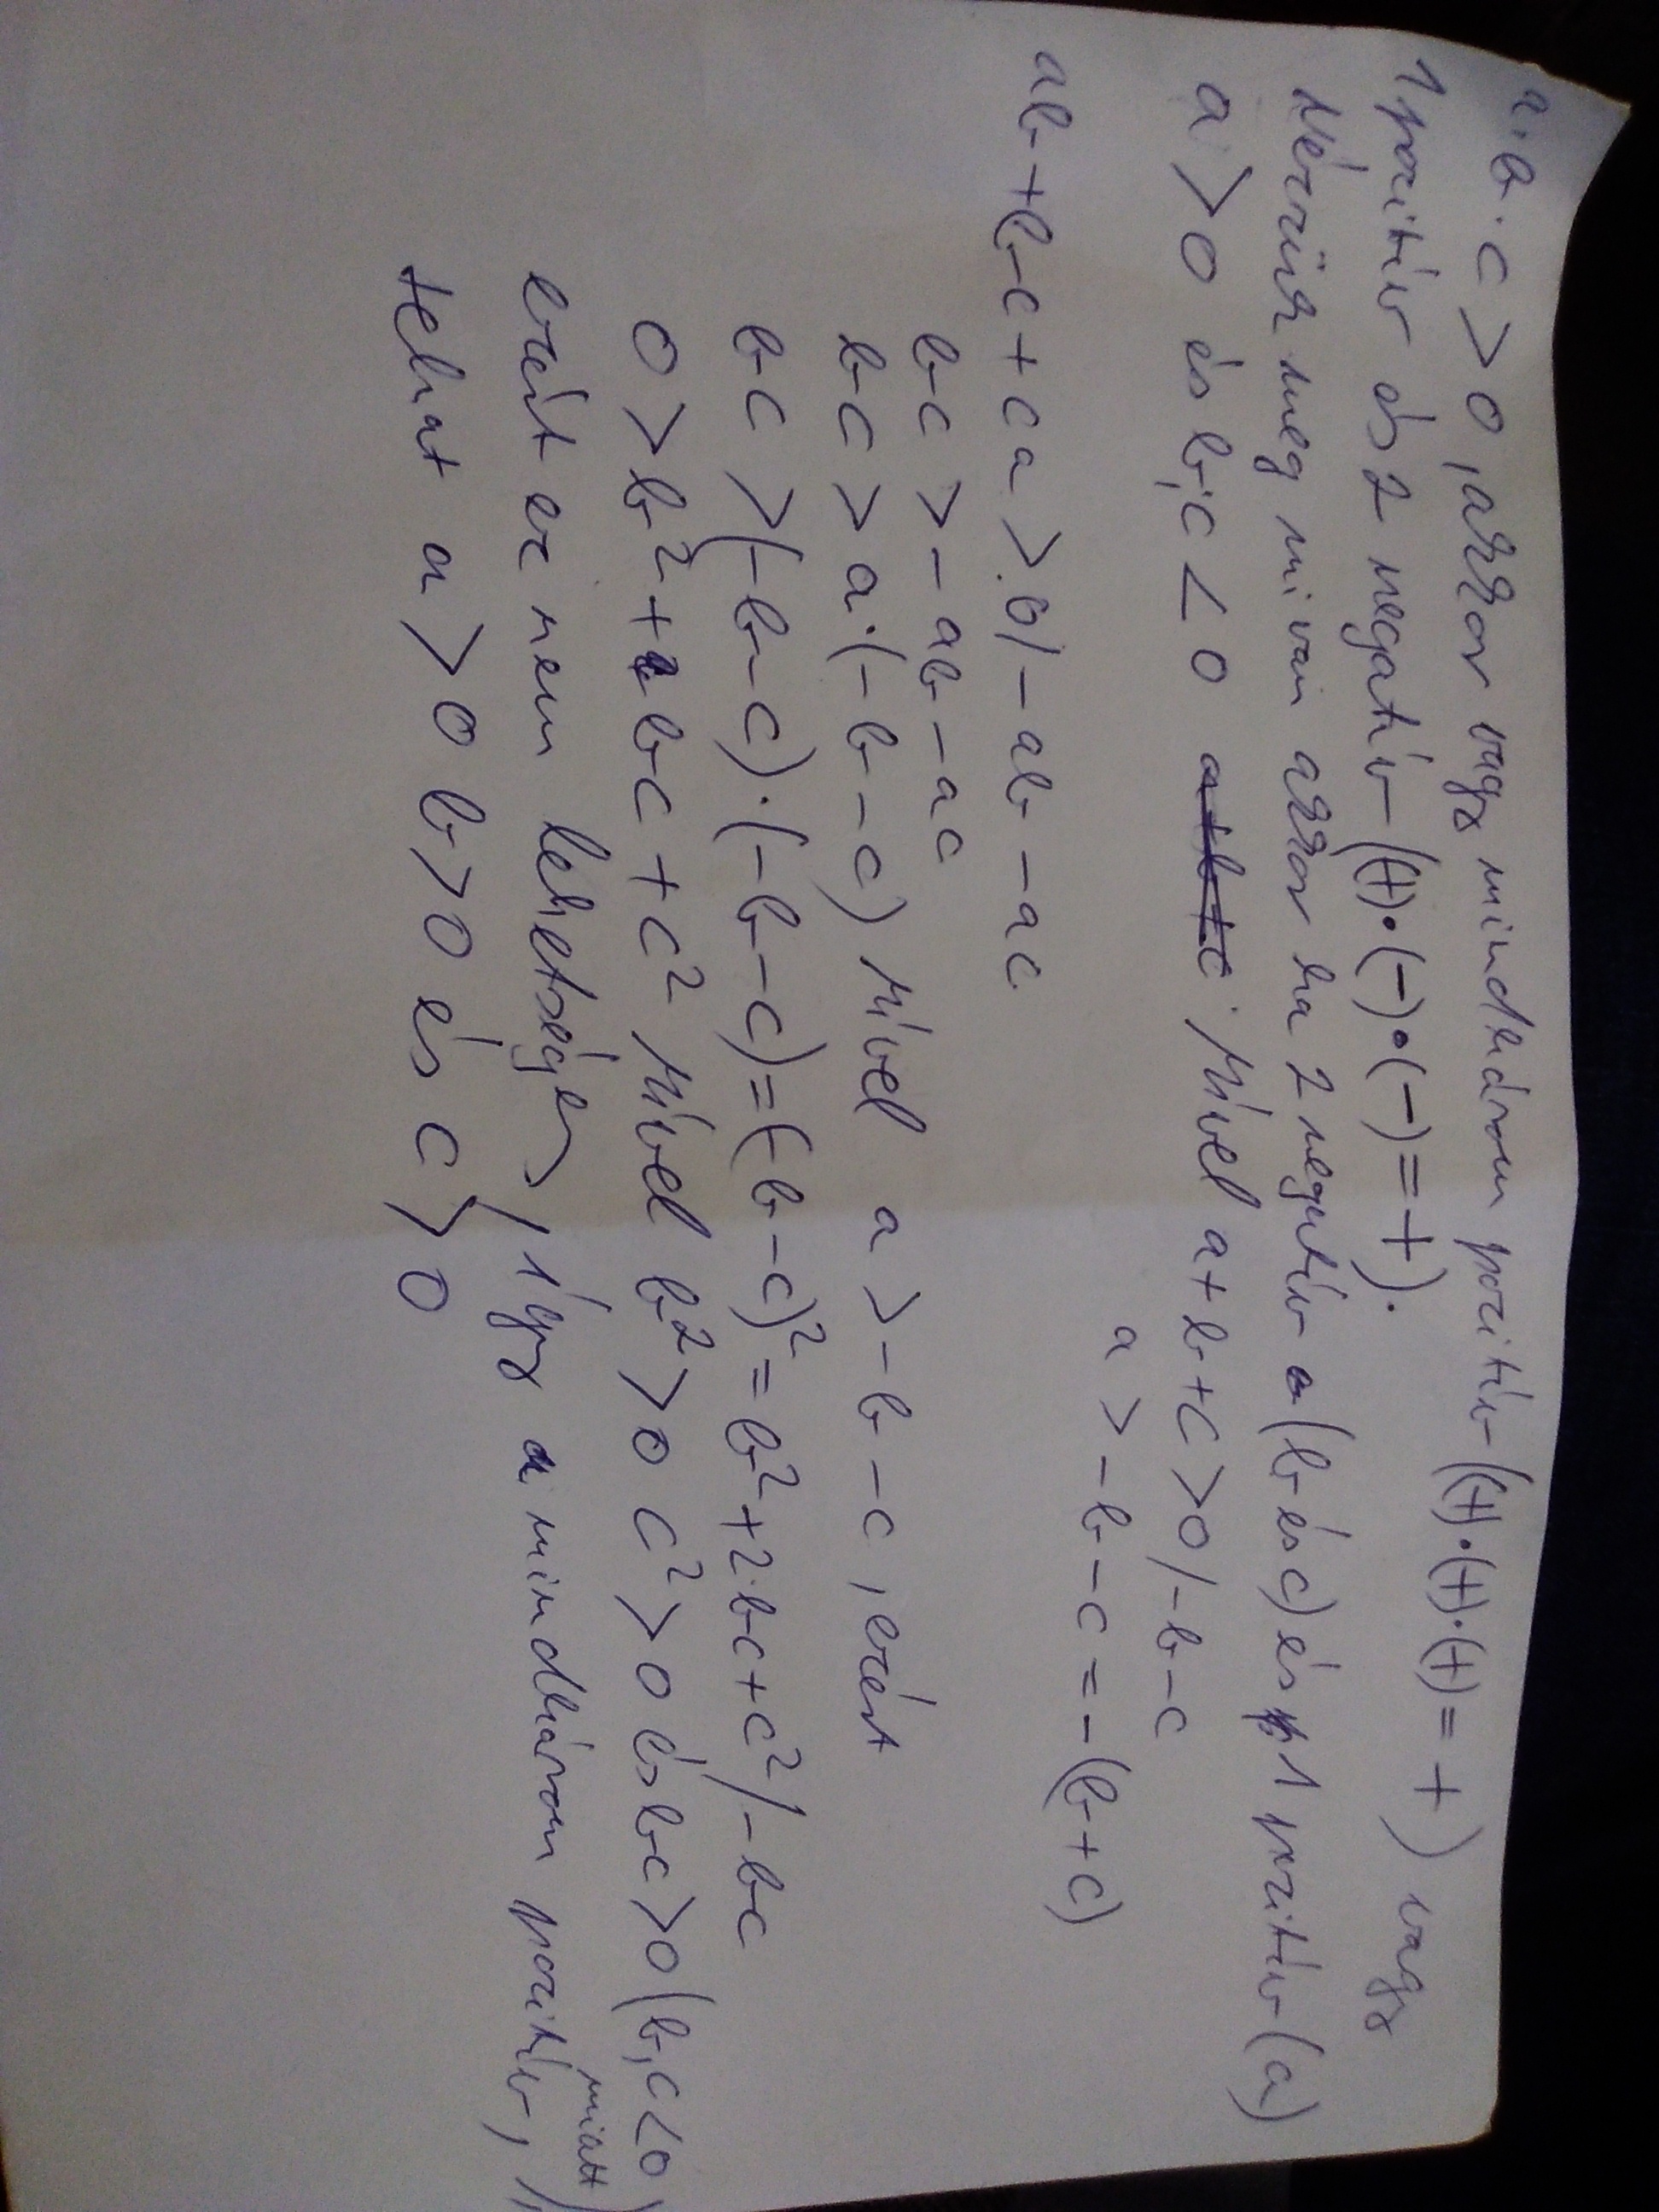 a·b·c > 0, akkor vagy mindhárom pozitív ((+)·(+)·(+) = +) vagy
1 pozitív és 2 negatív ((+)·(-)·(-) = +).
Nézzük meg mi van akkor ha 2 negatív (b és c) és 1 pozitív (a)
a > 0 és b;c < 0 a+b+c Mivel a+b+c > 0 /-b-c
a > -b-c = -(b+c)
ab+bc+ca > 0 /-ab-ac
bc > -ab-ac
bc > a·(-b-c) Mivel a > -b-c, ezért
bc > (-b-c)·(-b-c) = (-b-c)² = b²+2·bc+c² /-bc
0 > b²+bc+c² Mivel b² > 0 c² > 0 és bc > 0 (b,c < 0 miatt)
ezért ez nem lehetséges, így a mindhárom pozitív,
tehat a > 0 b > 0 és c > 0